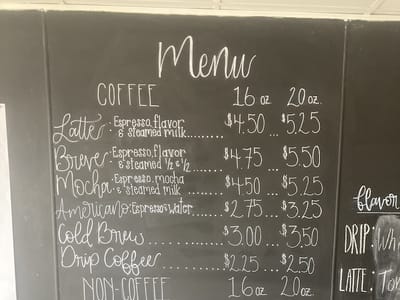 Menu
COFFEE 16 oz 20 oz.
Latte: Espresso, flavor
& steamed milk........ $4.50 ... $5.25
Breve: Espresso, flavor
& steamed ½ & ½ ...... $4.75 ... $5.50
Mocha: Espresso, mocha
& steamed milk....... $4.50 ... $5.25
Americano: Espresso & water ...... $2.75 ... $3.25
Cold Brew ............... $3.00 ... $3.50
Drip Coffee ............ $2.25 ... $2.50
NON-COFFEE 16 oz 20 oz
flavor
DRIP:
LATTE: